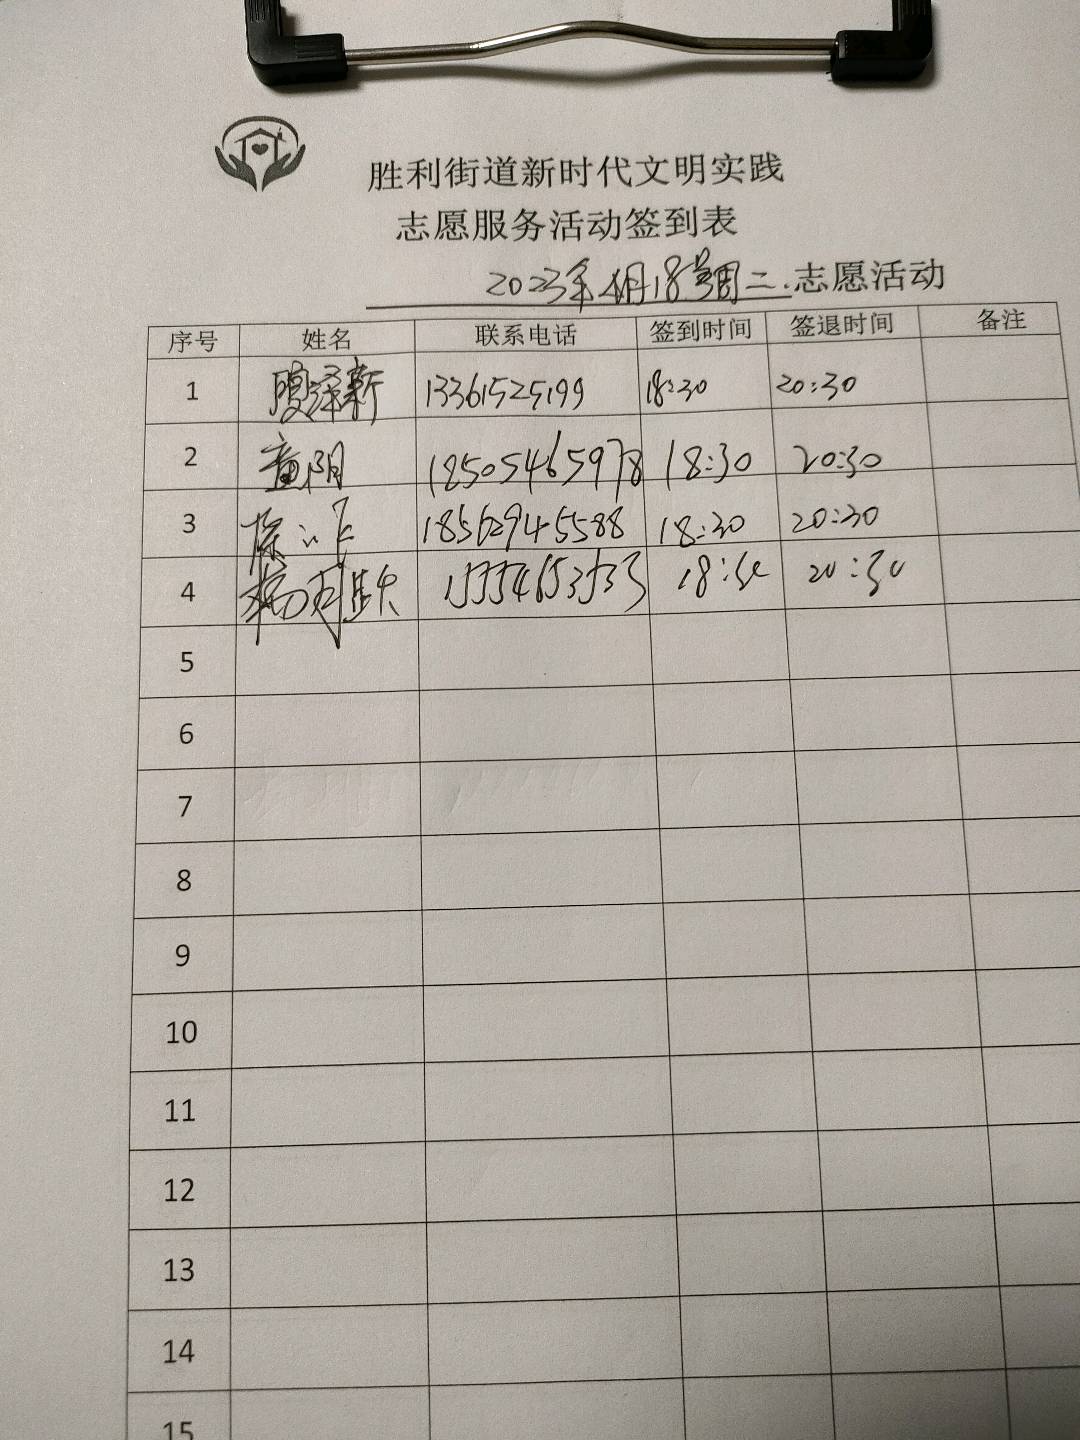 胜利街道新时代文明实践
志愿服务活动签到表
2023年4月18号周二.志愿活动
序号 姓名 联系电话 签到时间 签退时间 备注
1 13361525199 18:30 20:30
2 18505465978 18:30 20:30
3 18562945588 18:30 20:30
4 18:30 20:30
5
6
7
8
9
10
11
12
13
14
15